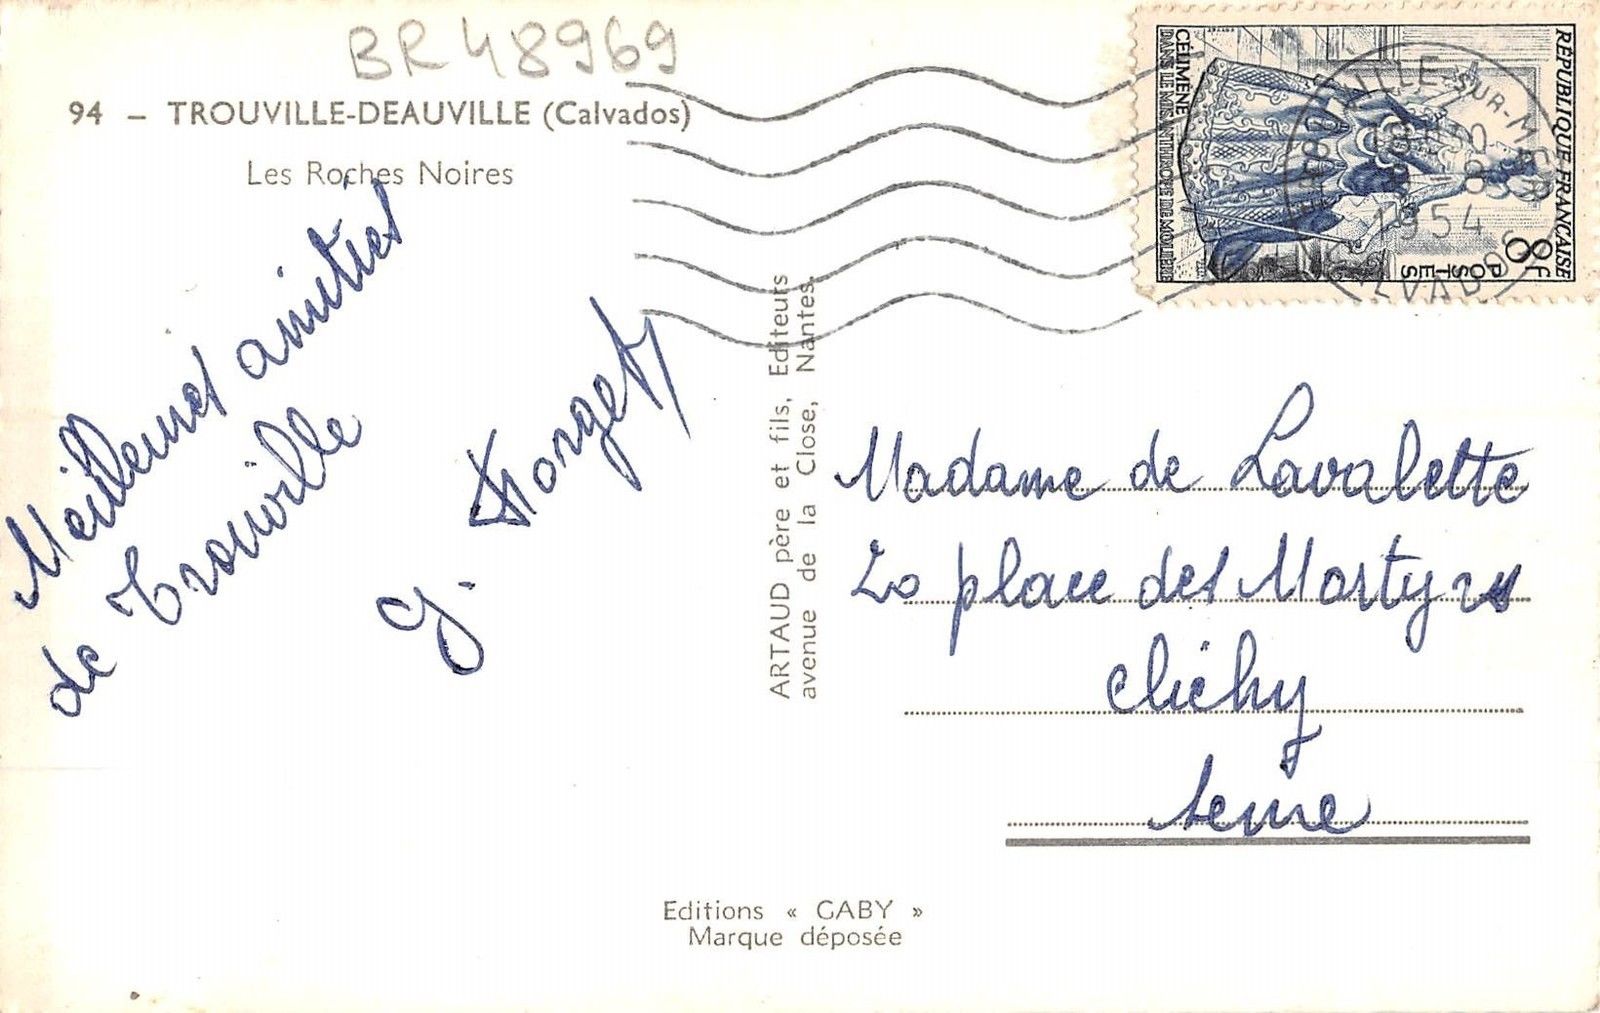 BR48969
94 – TROUVILLE-DEAUVILLE (Calvados)
Les Roches Noires
Meilleures amitiés
de Trouville
ARTAUD père et fils, Editeurs
avenue de la Close, Nantes.
RÉPUBLIQUE FRANÇAISE
8f
POSTES
CÉLIMÈNE
DANS LE MISANTHROPE DE MOLIÈRE
VILLE-SUR-MER
1954
CALVADOS
Madame de Lavalette
20 place des Martyrs
Clichy
Seine
Editions « GABY »
Marque déposée